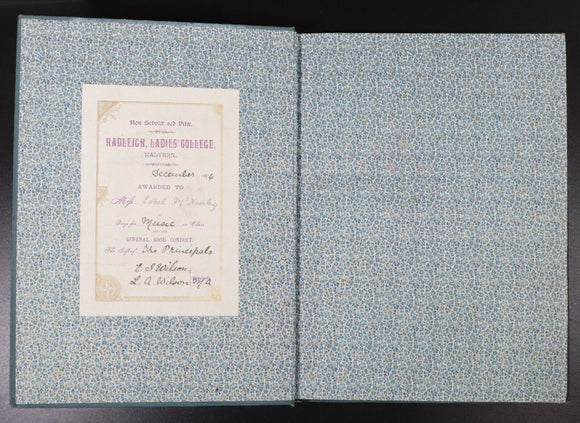 Non Scholæ sed Vitæ.
HADLEIGH LADIES' COLLEGE,
MALVERN.
December
AWARDED TO
Miss Ethel
Prize for Music in Class
AND FOR
GENERAL GOOD CONDUCT.
The Gift of The Principals
E S Wilson,
L. A. Wilson, M/A